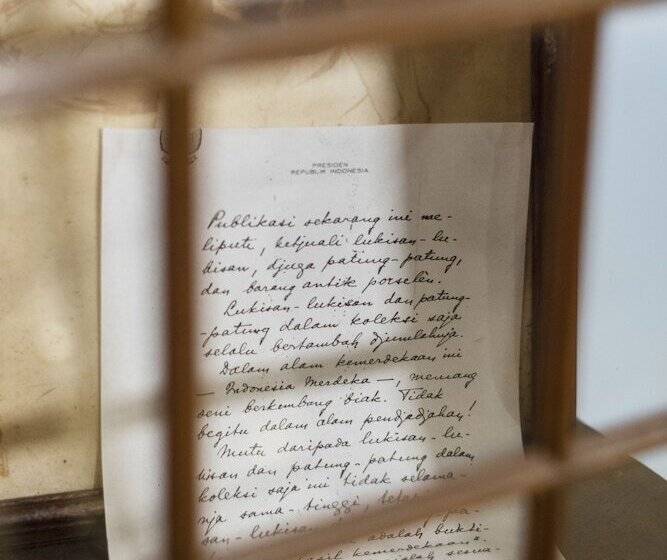 PRESIDEN
REPUBLIK INDONESIA
Publikasi sekarang ini me-
liputi, ketjuali lukisan-lu-
kisan, djuga patung-patung,
dan barang antik porselen.
Lukisan-lukisan dan patung-
-patung dalam koleksi saja
selalu bertambah djumlahnja.
Dalam alam kemerdekaan ini
— Indonesia Merdeka —, memang
seni berkembang biak. Tidak
begitu dalam alam pendjadjahan!
Mutu daripada lukisan-lu-
kisan dan patung-patung dalam
koleksi saja ini tidak selama-
nja sama-tinggi,
san-lukisan
adalah bukti-
hasil kemerdekaan.